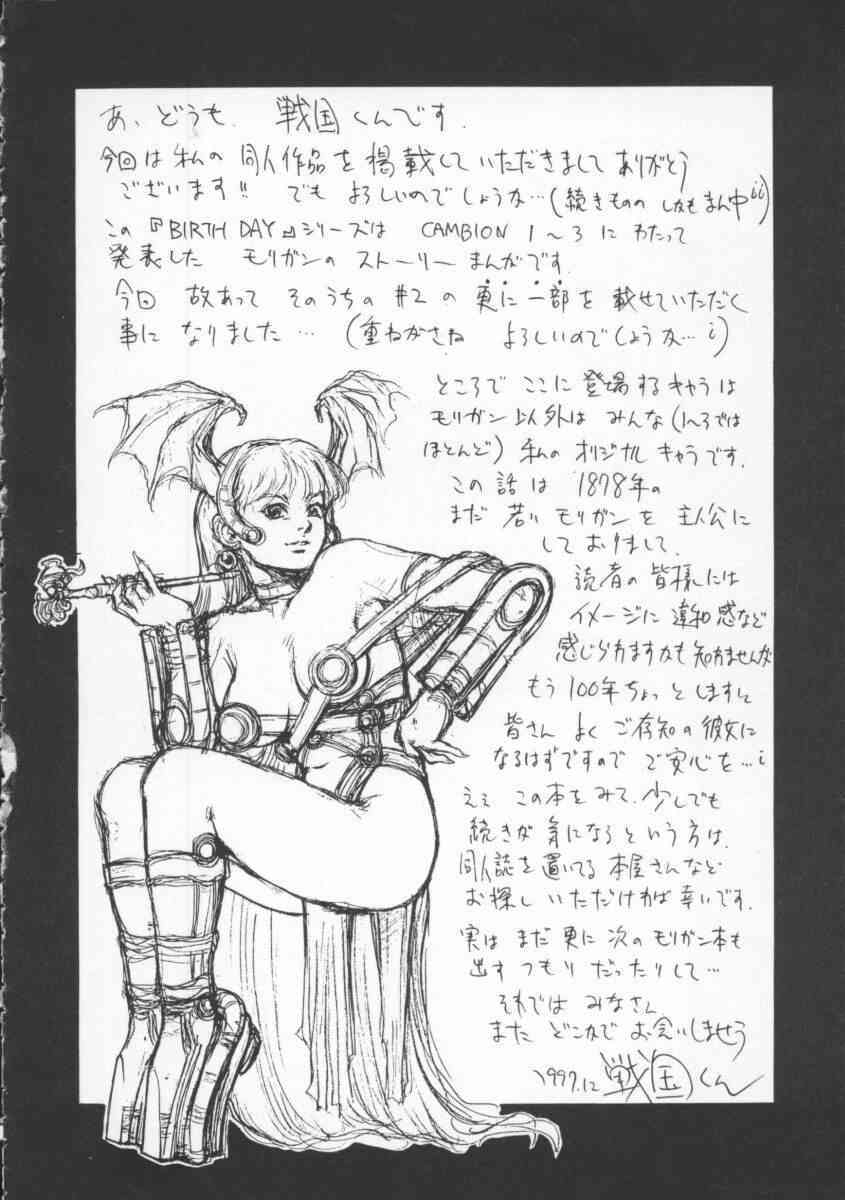 あ、どうも、 戦国くんです.
今回は 私の 同人作品を 掲載して いただきまして ありがとう
ございます!! でも よろしいのでしょうか…(続きものの しかも まん中
この『BIRTH DAY』シリーズは CAMBION 1～3 に わたって
発表した モリガンの ストーリー まんがです.
今回 故あって そのうちの #2 の 更に 一部を 載せていただく
事に なりました… (重ねがさね よろしいのでしょうか…
ところで ここに 登場する キャラは
モリガン以外は みんな(1～3では
ほとんど) 私の オリジナル キャラです.
この 話は 1878年の
まだ 若い モリガンを 主人公に
しておりまして.
読者の 皆様には
イメージに 違和感など
感じられますかも 知れませんが
もう 100年ちょっと しますと
皆さん よく ご存知の 彼女に
なるはずですので ご安心を…
ええ この本をみて、少しでも
続きが 気になる という方は、
同人誌を 置いてる 本屋さんなど
お探し いただければ 幸いです.
実は まだ 更に 次の モリガン本も
出す つもり だったりして…
それでは みなさん
また どこかで お会いしませう
1997.12 戦国くん